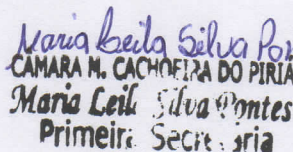 Maria Leila Silva Pon
CAMARA M. CACHOEIRA DO PIRIA
Maria Leila Silva Pontes
Primeira Secretaria